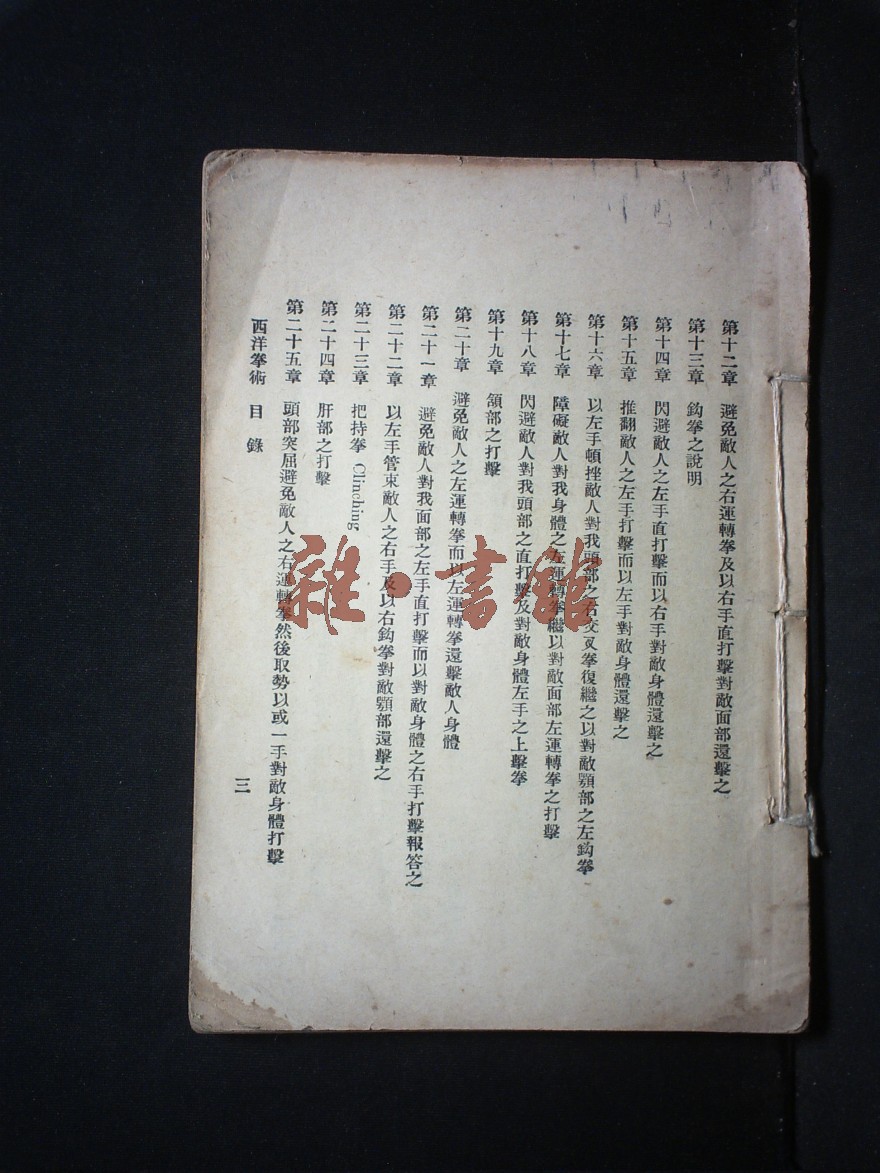 第十二章 避免敵人之右運轉拳及以右手直打擊對敵面部還擊之
第十三章 鈎拳之說明
第十四章 閃避敵人之左手直打擊而以右手對敵身體還擊之
第十五章 推翻敵人之左手打擊而以左手對敵身體還擊之
第十六章 以左手頓挫敵人對我頭部之右交叉拳復繼之以對敵顎部之左鈎拳
第十七章 障礙敵人對我身體之左運轉拳繼以對敵面部左運轉拳之打擊
第十八章 閃避敵人對我頭部之直打擊及對敵身體左手之上擊拳
第十九章 頷部之打擊
第二十章 避免敵人之左運轉拳而以左運轉拳還擊敵人身體
第二十一章 避免敵人對我面部之左手直打擊而以對敵身體之右手打擊報答之
第二十二章 以左手管束敵人之右手及以右鈎拳對敵顎部還擊之
第二十三章 把持拳 Clinching
第二十四章 肝部之打擊
第二十五章 頭部突屈避免敵人之右運轉拳然後取勢以或一手對敵身體打擊
西洋拳術 目錄 三
雜·書館